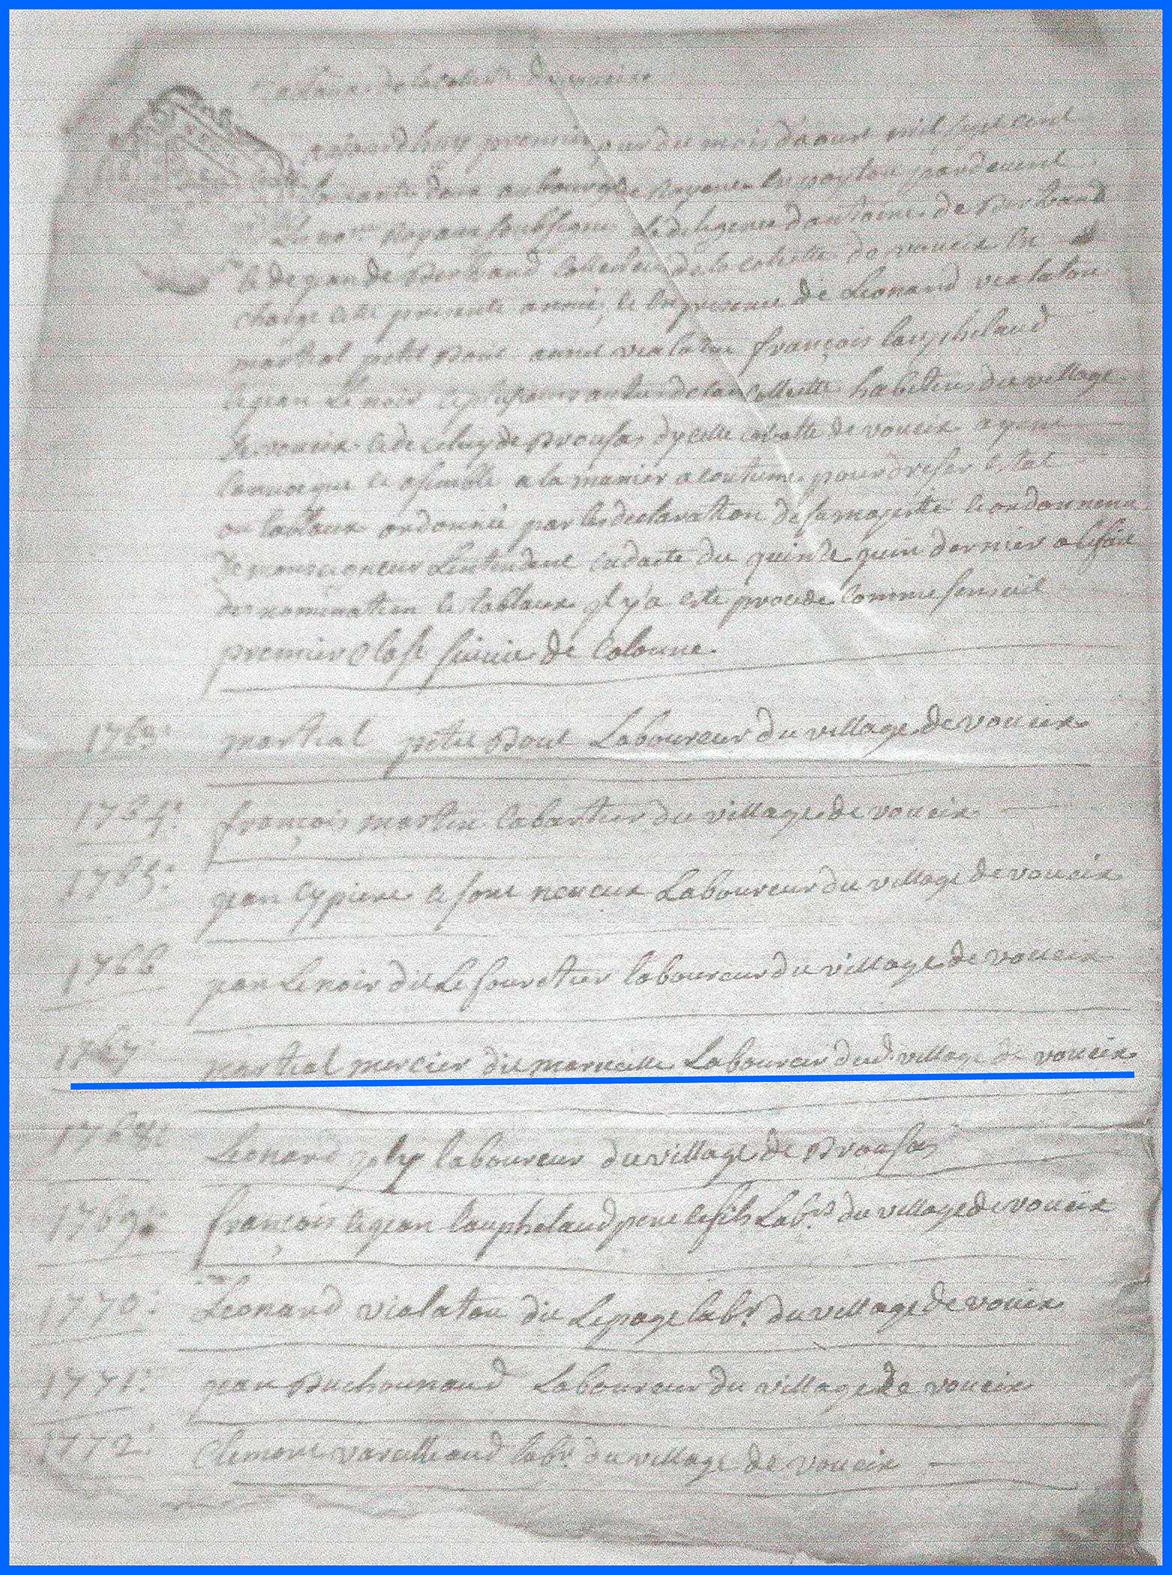 de la collecte de voueix
aujourdhuy premier jour du mois daout mil sept cent
soixante deux au bourg de Royere en poytou pardevent
Le no.re Royal soubsigne de diligence dantoine de Bertrand
le de jean de Bertrand collecteur de la collette de voueix en
charge cette presente année, et en presence de Leonard vialatou
martial petit Bout vialatou françois lauphelaud
le jean Lenoir de la collette habitens du village
De voueix le de celuy de Brousas dycelle collette de voueix ayent
convoque le asemble a la manier acoutume pour dreser letat
ou tableaux ordonnée par les declaration de sa majeste le ordonnence
De monseigneur Lintendent endaste du quinze juin dernier a lefait
de nomination le tableaux jl y a este procede comme senseuil
premier clase suivie de colonne.
1763: martial petit Bout Laboureur du village de voueix
1764: françois martin cabartier du village de voueix
1765: jean cypiere le son neveux Laboureur du village de voueix
1766 jean Lenoir dit Le fouretier laboureur du village de voueix
1767 martial mercier dit Laboureur dud. village de voueix
1768: Leonard joly laboureur du village de Brousas
1769: françois le jean lauphelaud pere le fils Lab.rs du village de voueix
1770: Leonard vialatou dit Lepage lab.r du village de voueix
1771: jean Duchounaud Laboureur du village de voueix
1772: Clemont lab.r du village de voueix